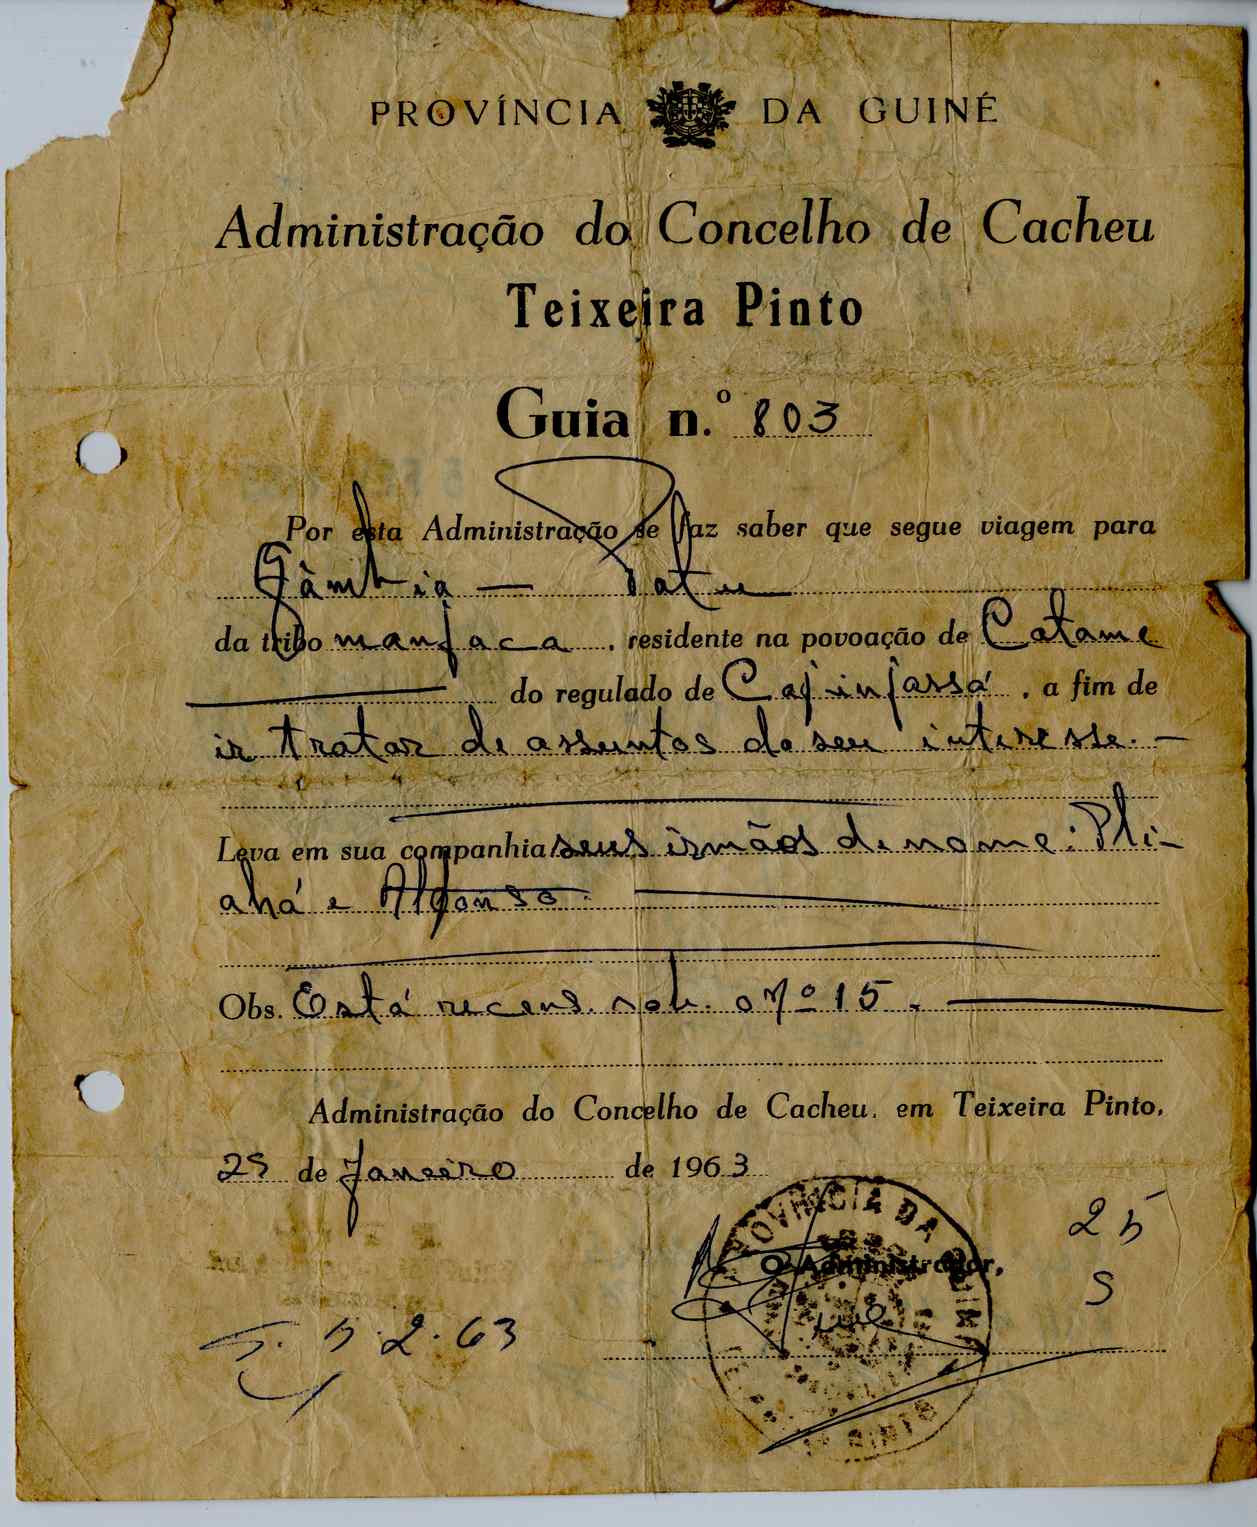 PROVÍNCIA DA GUINÉ
Administração do Concelho de Cacheu
Teixeira Pinto
Guia n.º 803
Por esta Administração se faz saber que segue viagem para
Gâmbia —
da tribo manjaca, residente na povoação de Catame
do regulado de Cajinjassá, a fim de
ir tratar de assuntos do seu interesse. —
Leva em sua companhia seus irmãos de nome: Pli-
ahá e Alfonso.
Obs. Está recens. sob. o Nº 15.
Administração do Concelho de Cacheu, em Teixeira Pinto,
25 de Janeiro de 1963
PROVINCIA DA
O Administrador,
25
S
5.2.63